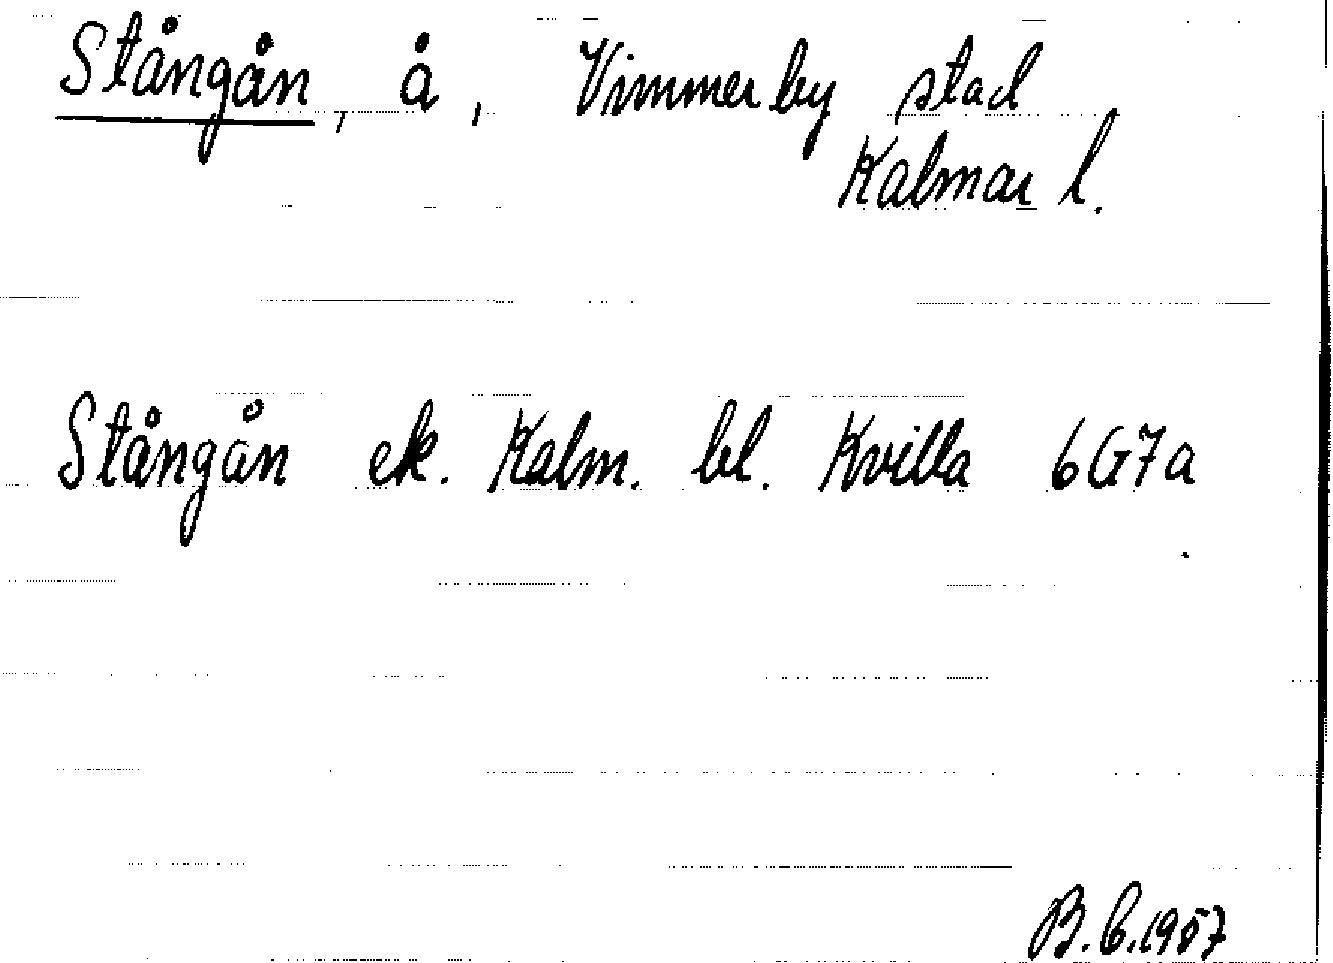 Stångån, å, Vimmerby stad
Kalmar l.
Stångån ek. Kalm. bl. Kvilla 6G7a
B.C.1957